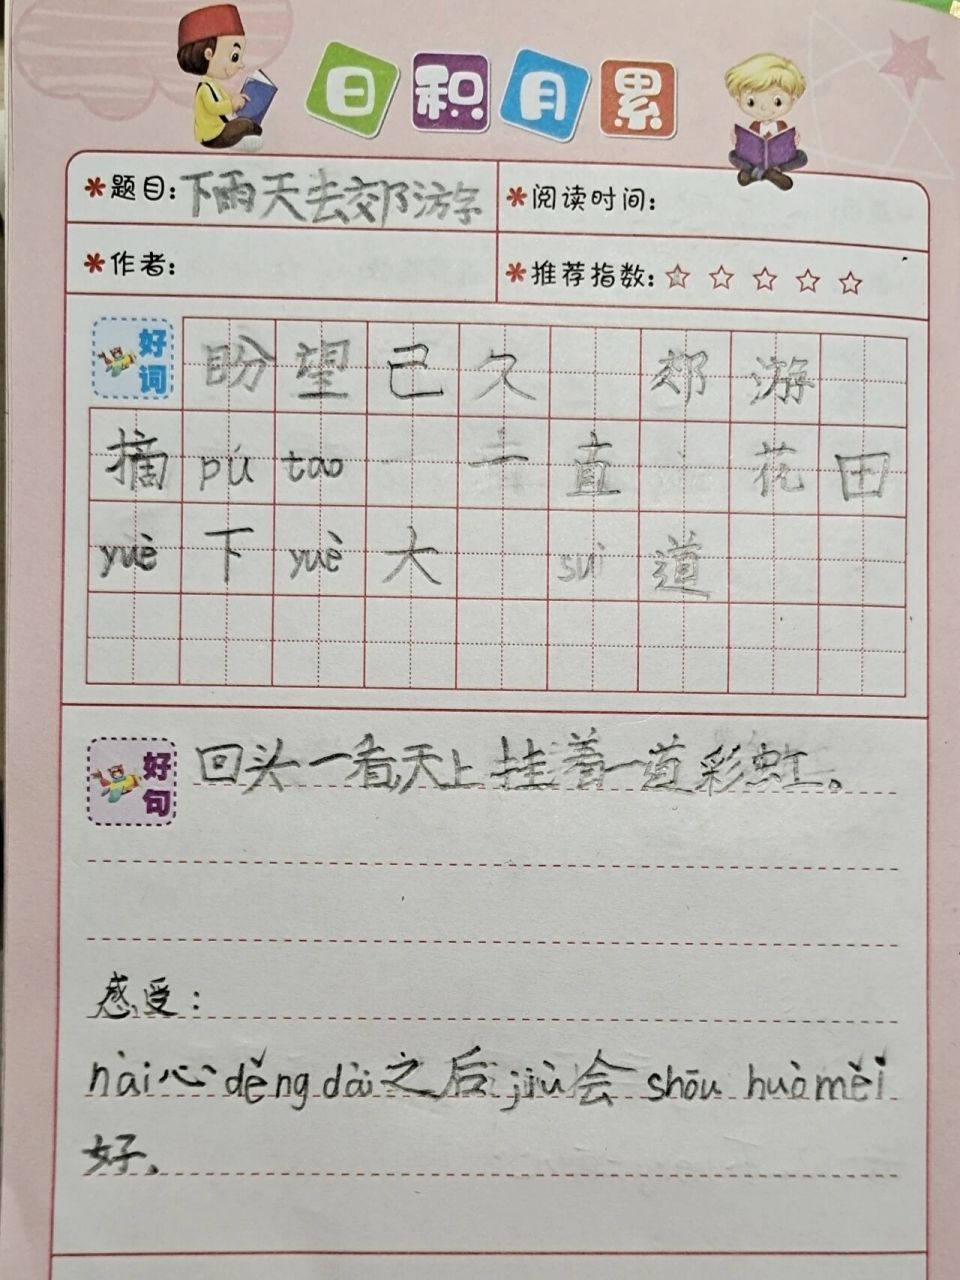 日积月累
题目:下雨天去郊游 阅读时间:
作者: 推荐指数:
好词 盼望已久 郊游
摘 pú tao 一直 花田
yuè 下 yuè 大 suì 道
好句 回头一看天上挂着一道彩虹。
感受:
nài心děngdài之后jiù会 shōu huòměi
好。